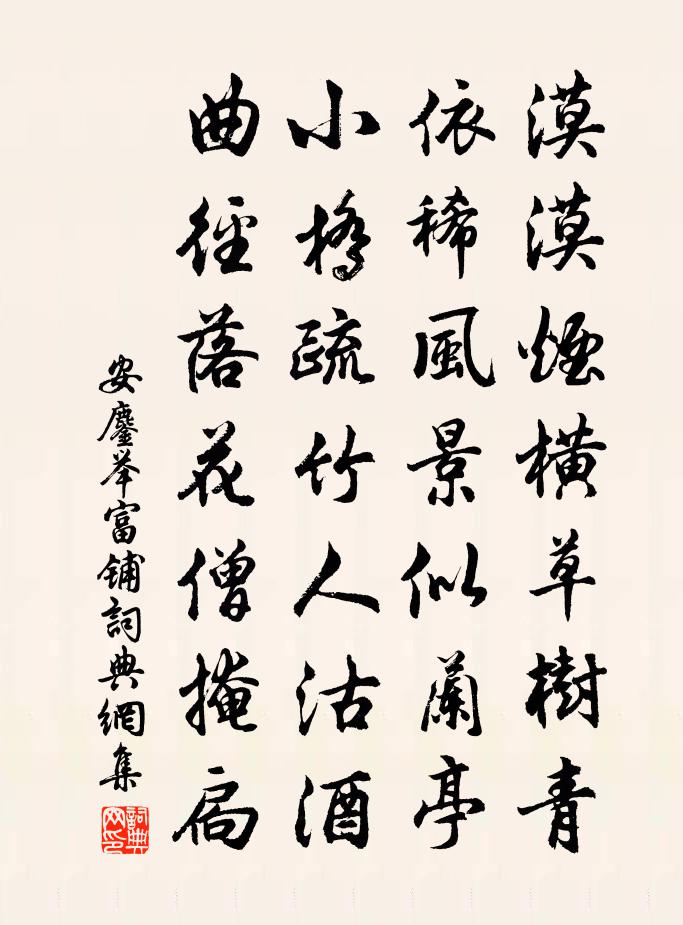 漠漠煙橫草樹青
依稀風景似蘭亭
小橋疏竹人沽酒
曲徑落花僧掩扃
安鏖举富铺詞典網集
詞典
网印